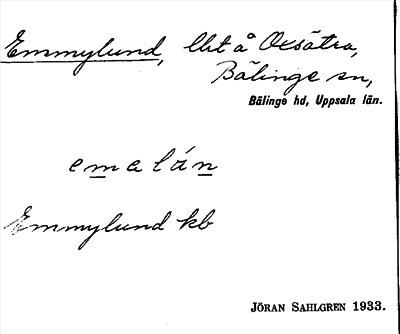 Emmylund, llit å Oxsätra,
Bälinge sn,
Bälinge hd, Uppsala län.
emalán
Emmylund kb
JÖRAN SAHLGREN 1933.